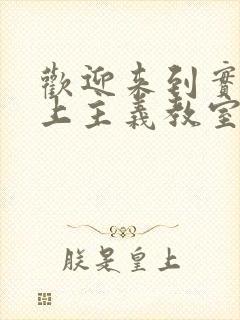 歡迎来到實
上主義教室
朕是皇上